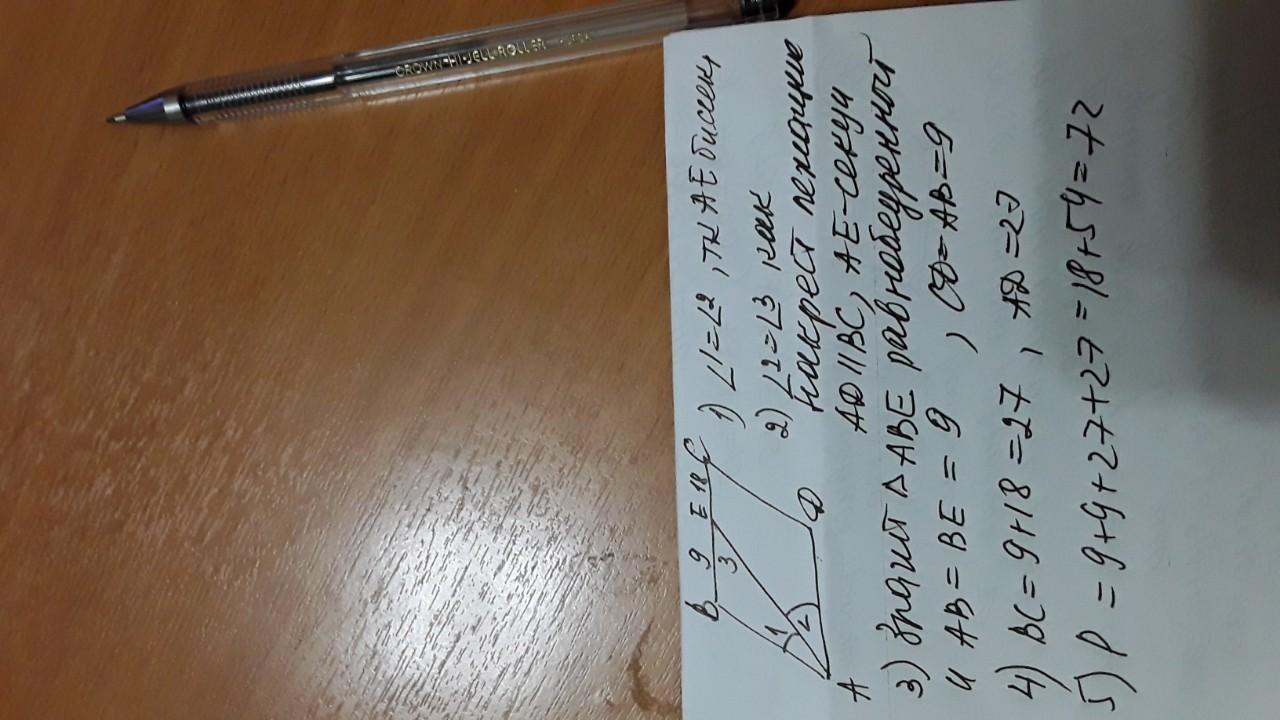 CROWN HI-JELL ROLLER
B 9 E 18 C
3
1
2
A
D
1) ∠1=∠2, тк AE биссект
2) ∠2=∠3 как
накрест лежащие
AD||BC, AE-секущ
3) Значит △ ABE равнобедренный
и AB=BE=9, CD=AB=9
4) BC=9+18=27, AD=27
5) P=9+9+27+27=18+54=72